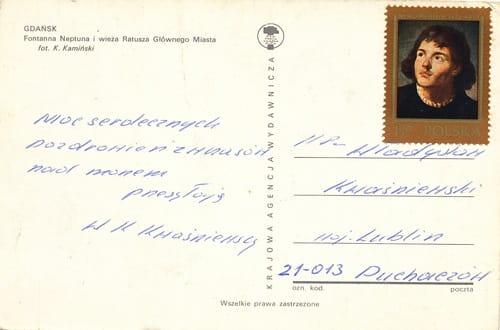 GDAŃSK
Fontanna Neptuna i wieża Ratusza Głównego Miasta
fot. K. Kamiński
Moc serdecznych
pozdrowień z wczasów
nad morzem
przesyłają
W K Kwaśnieńscy
KRAJOWA AGENCJA WYDAWNICZA
POLSKA
W.P.
Władysław
Kwaśnienski
woj. Lublin
21-013 Puchaczów
ozn. kod. poczta
Wszelkie prawa zastrzeżone